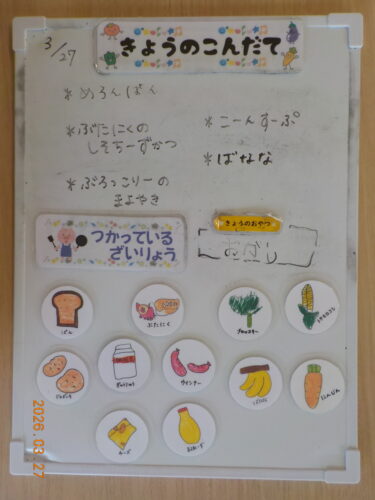 きょうのこんだて
3/27
*めろんぱん
*ぶたにくの
しそちーずかつ
*ぶろっこりーの
まよやき
*こーんすーぷ
*ばなな
つかっている
ざいりょう
きょうのおやつ
ぱん
ぶたにく
ブロッコリー
トウモロコシ
じゃがいも
ぎゅうにゅう
ウインナー
ばなな
にんじん
チーズ
まよねーず
2026.03.27